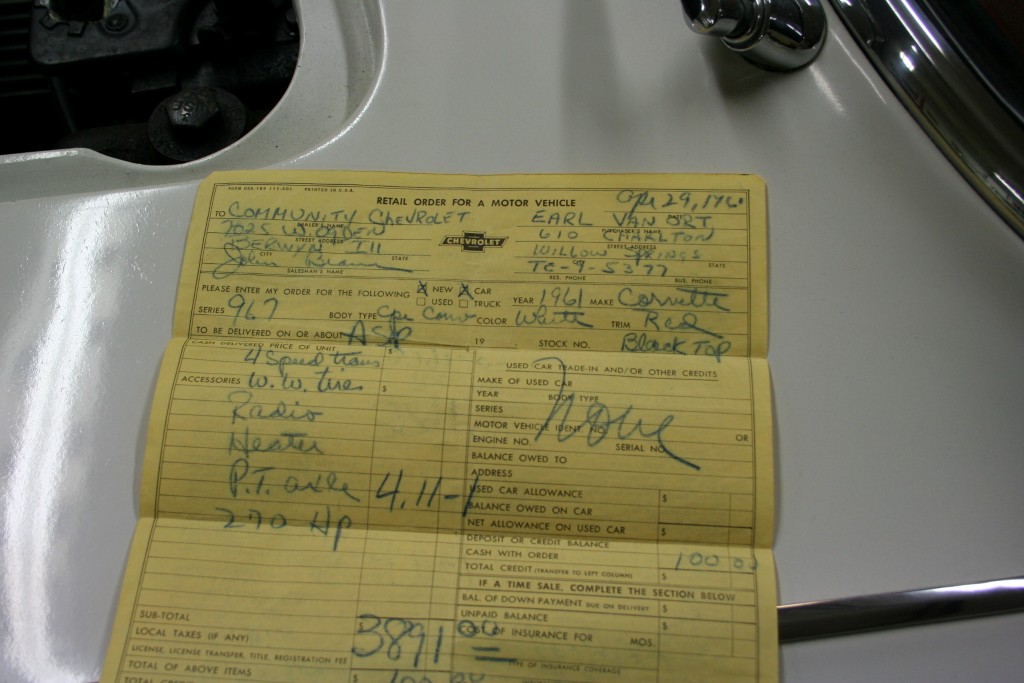 FORM ORA-189 (11-60) PRINTED IN U.S.A.
RETAIL ORDER FOR A MOTOR VEHICLE
Apr 29, 1961
DATE
TO COMMUNITY CHEVROLET
DEALER'S NAME
7025 W. OGDEN
STREET ADDRESS
BERWYN Ill
CITY STATE
John
SALESMAN'S NAME
CHEVROLET
EARL VAN ORT
PURCHASER'S NAME
610 CHARLTON
STREET ADDRESS
WILLOW SPRINGS
CITY STATE
TC-9-5377
RES. PHONE BUS. PHONE
PLEASE ENTER MY ORDER FOR THE FOLLOWING X NEW X CAR YEAR 1961 MAKE Corvette
USED TRUCK
SERIES 967 BODY TYPE Cpe Conv COLOR White TRIM Red
TO BE DELIVERED ON OR ABOUT ASAP 19 . STOCK NO. Black Top
CASH DELIVERED PRICE OF UNIT $
4 Speed trans
ACCESSORIES W.W. tires $
Radio
Heater
P.T. axle 4.11-1
270 Hp
SUB-TOTAL
LOCAL TAXES (IF ANY)
3891 00
LICENSE, LICENSE TRANSFER, TITLE, REGISTRATION FEE
TOTAL OF ABOVE ITEMS $
100 00
USED CAR TRADE-IN AND/OR OTHER CREDITS
MAKE OF USED CAR
YEAR BODY TYPE
None
SERIES
MOTOR VEHICLE IDENT. NO. OR
ENGINE NO. SERIAL NO.
BALANCE OWED TO
ADDRESS
USED CAR ALLOWANCE $
BALANCE OWED ON CAR
NET ALLOWANCE ON USED CAR $
DEPOSIT OR CREDIT BALANCE
CASH WITH ORDER 100 00
TOTAL CREDIT (TRANSFER TO LEFT COLUMN) $
IF A TIME SALE, COMPLETE THE SECTION BELOW
BAL. OF DOWN PAYMENT DUE ON DELIVERY $
UNPAID BALANCE $
OF INSURANCE FOR MOS.
TYPE OF INSURANCE COVERAGE